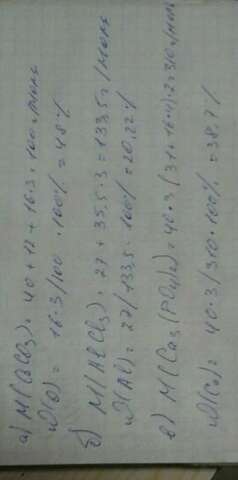 а) M(CaCO3) = 40+12+16·3 = 100 г/моль
W(O) = 16·3/100 · 100% = 48%
б) M(AlCl3) = 27 + 35,5·3 = 133,5 г/моль
W(Al) = 27/133,5 · 100% = 20,22%
в) M(Ca3(PO4)2) = 40·3+(31+16·4)·2=310 г/моль
W(Ca) = 40·3/310·100% = 38,7%